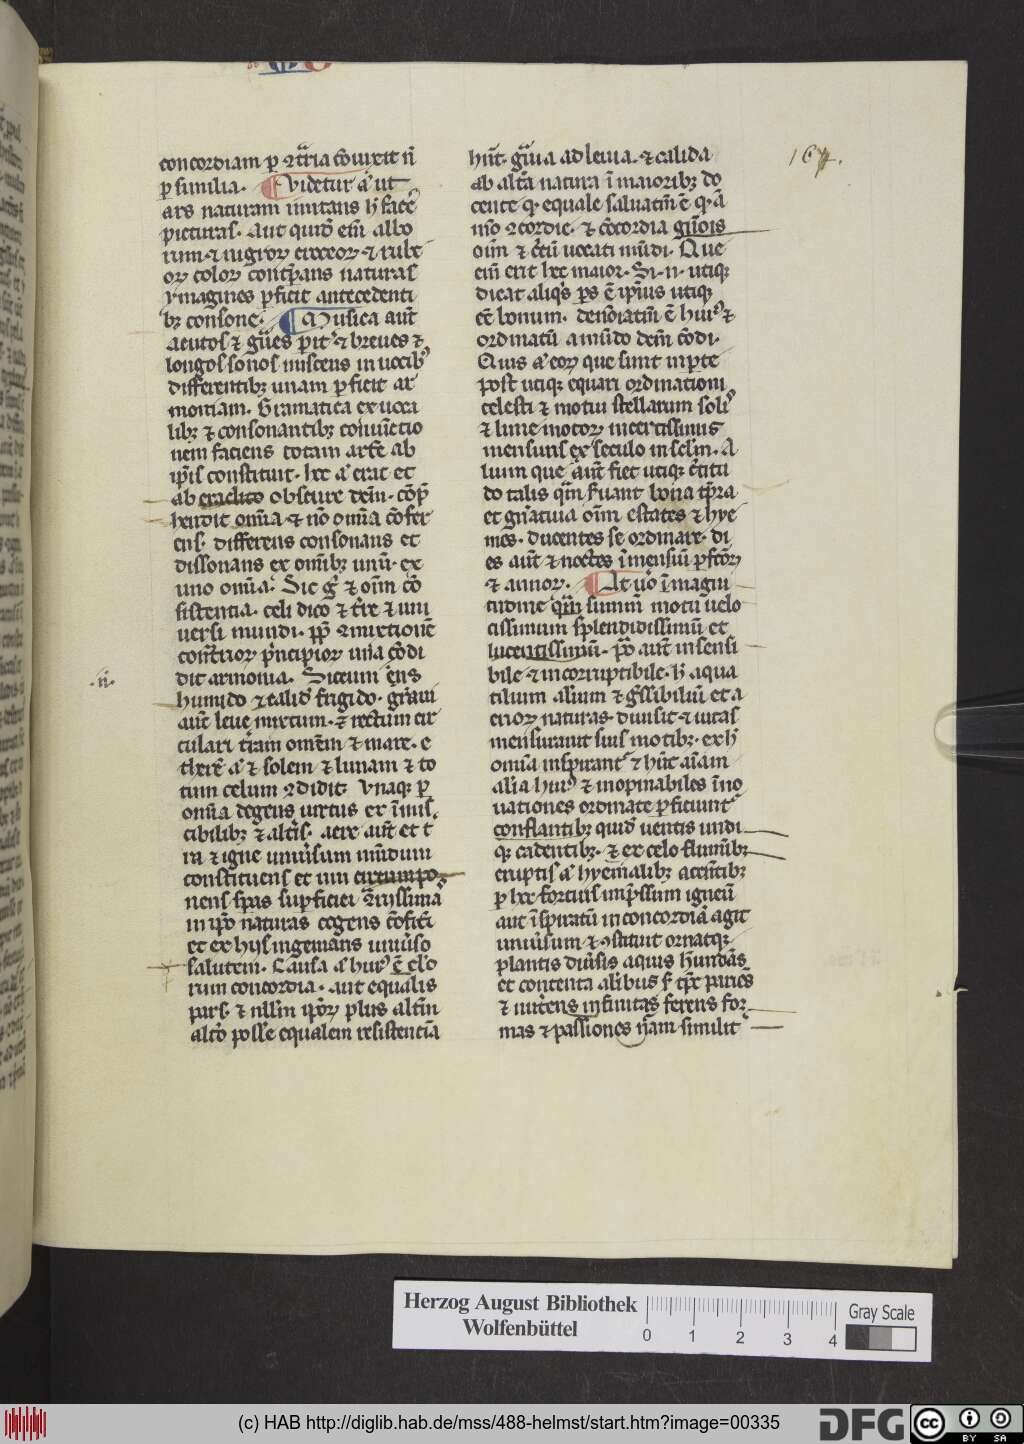 concordiam ꝑ ɔt͛ria cōuixit ñ
ꝑ similia. Videtur a͛ ut
ars naturam imitans h̄ face͛
picturas. Aut quid̄ em̄ albo
rum ⁊ nigroꝝ croceoꝝ ⁊ rube
oꝝ coloꝝ conꝑans naturas
ymagines ꝑficit antecedenti
bꝫ consone. Musica aut̄
acutos ⁊ ꝑit͛ ⁊ breues ⁊
longos sonos miscens in uocibꝰ
differentibꝫ unam ꝑficit ar
moniam. Gramatica ex uoca
libꝫ ⁊ consonantibꝫ coniūctio
nem faciens totam artē ab
ip̄is constituit. hec a͛ erat et
ab eraclito obscure dcm̄. cōp̄
hendit om̄ia ⁊ nō om̄ia cōfer
ens. differens consonans et
dissonans ex om̄ibꝫ unū. ex
uno om̄ia. Sic g͛ ⁊ oīm cō
sistentia. celi dico ⁊ t͛re ⁊ uni
uersi mundi. ꝓp̄ ɔmixtionē
cont͛rioꝝ p͛ncipioꝝ una cōdi
dit armonia. Siccum ens
humido ⁊ calid̄ frigido. graui
aut̄ leue mixtum. ⁊ rectum cir
culari t͛ram omēm ⁊ mare. e
there͛ a͛ ⁊ solem ⁊ lunam ⁊ to
tum celum ɔdidit. Vnaqꝫ ꝑ
om̄ia degens uirtus ex īmis
cibilibꝫ ⁊ alt͛is. aere aut̄ et t͛
ra ⁊ igne uniu͛sum mūdum
constituens et uni circumpo
nens sp̄as suꝑficiei
in ip̄o naturas cogens
et ex hys ingemans uniu͛so
salutem. Causa a͛ huiꝰ ē
rum concordia. aut equalis
pars. ⁊ nllm̄ ip̄oꝝ plus alt͛m
alt͛o posse equalem resistencia
hn̄t. g͛uia ad leuia. ⁊ calida
ab alt͛a natura ī maioribꝫ do
cente ꝙ equale saluatiuū ē
concordie. ⁊ cōcordia
oīm ⁊ uocati mūdi. Que
em̄ erit hec maior. Si .n. utiqꝫ
dicat aliq͛s ps ē ip̄ius utiqꝫ
cē bonum. ē huiꝰ ⁊
ordinatū a mūdo dcm̄ cōdi.
Quis a͛ eoꝝ que sunt in ꝑte
post utiqꝫ equari ordinationi
celesti ⁊ motui stellarum solisꝰ
⁊ lune motoꝝ incertissimis
mensuris ex seculo in sclm̄. A
luum que aut̄ fiet utiqꝫ
do talis bona tp̄ra
et gn̄atiua oīm estates ⁊ hye
mes. ducentes se ordinate. di
es aut̄ ⁊ noctes ī mensiū
⁊ annoꝝ. At uo͛ ī magni
tudine summ̄ motū uelo
cissimum splendidissimū et
lucentissimū. aut̄ insensi
bile ⁊ incorruptibile. h̄ aqua
tilium alium ⁊ et a
erioꝝ naturas diuisit ⁊ uitas
mensurauit suis motibꝫ. ex h̄
om̄ia inspirant ⁊ hn̄t aīam
alia huiꝰ ⁊ inopinabiles īno
uationes ordinate ꝑficiunt
conflantibꝫ quid̄ uentis undi
qꝫ cadentibꝫ. ⁊ ex celo fluminibꝫ
eruptis a͛ hyemalibꝫ
ꝑ hec fortius imp͛ssum igneū
aut īspiratū in concordiā agit
uniu͛sum ⁊ ꝯstituit ornatqꝫ
plantis diu͛sis aquis hundās
et contenta
⁊ nut͛ens infinitas ferens for
mas ⁊ passiones n̄am similit
167.
.ii.
Herzog August Bibliothek
Wolfenbüttel
0 1 2 3 4
Gray Scale
(c) HAB http://diglib.hab.de/mss/488-helmst/start.htm?image=00335
DFG
CC BY SA